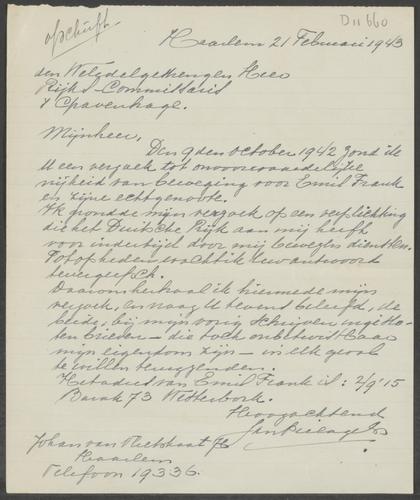 afschrift.
D11660
Haarlem 21 Februari 1943
den WelEdelgestrengen Heer
Rijks-Commissaris
's Gravenhage.
Mijnheer,
Den 9 den october 1942 zond ik
U een verzoek tot onvoorwaardelijke
vrijheid van beweging voor Emil Frank
en zijne echtgenoote.
Ik grondde mijn verzoek op een verplichting
die het Duitsche Rijk aan mij heeft
voor indertijd door mij bewezen diensten.
Tot op heden wacht ik Uw antwoord
tevergeefsch.
Daarom herhaal ik hiermede mijn
verzoek, en vraag U tevens beleefd, de
beide, bij mijn vorig schrijven ingeslo-
ten brieven - die toch onbetwistbaar
mijn eigendom zijn - in elk geval
te willen terugzenden.
Het adres van Emil Frank is: 2/9'15
Barak 73 Westerbork.
Hoogachtend
Johan van Vlietstraat
Haarlem
Telefoon 19336.